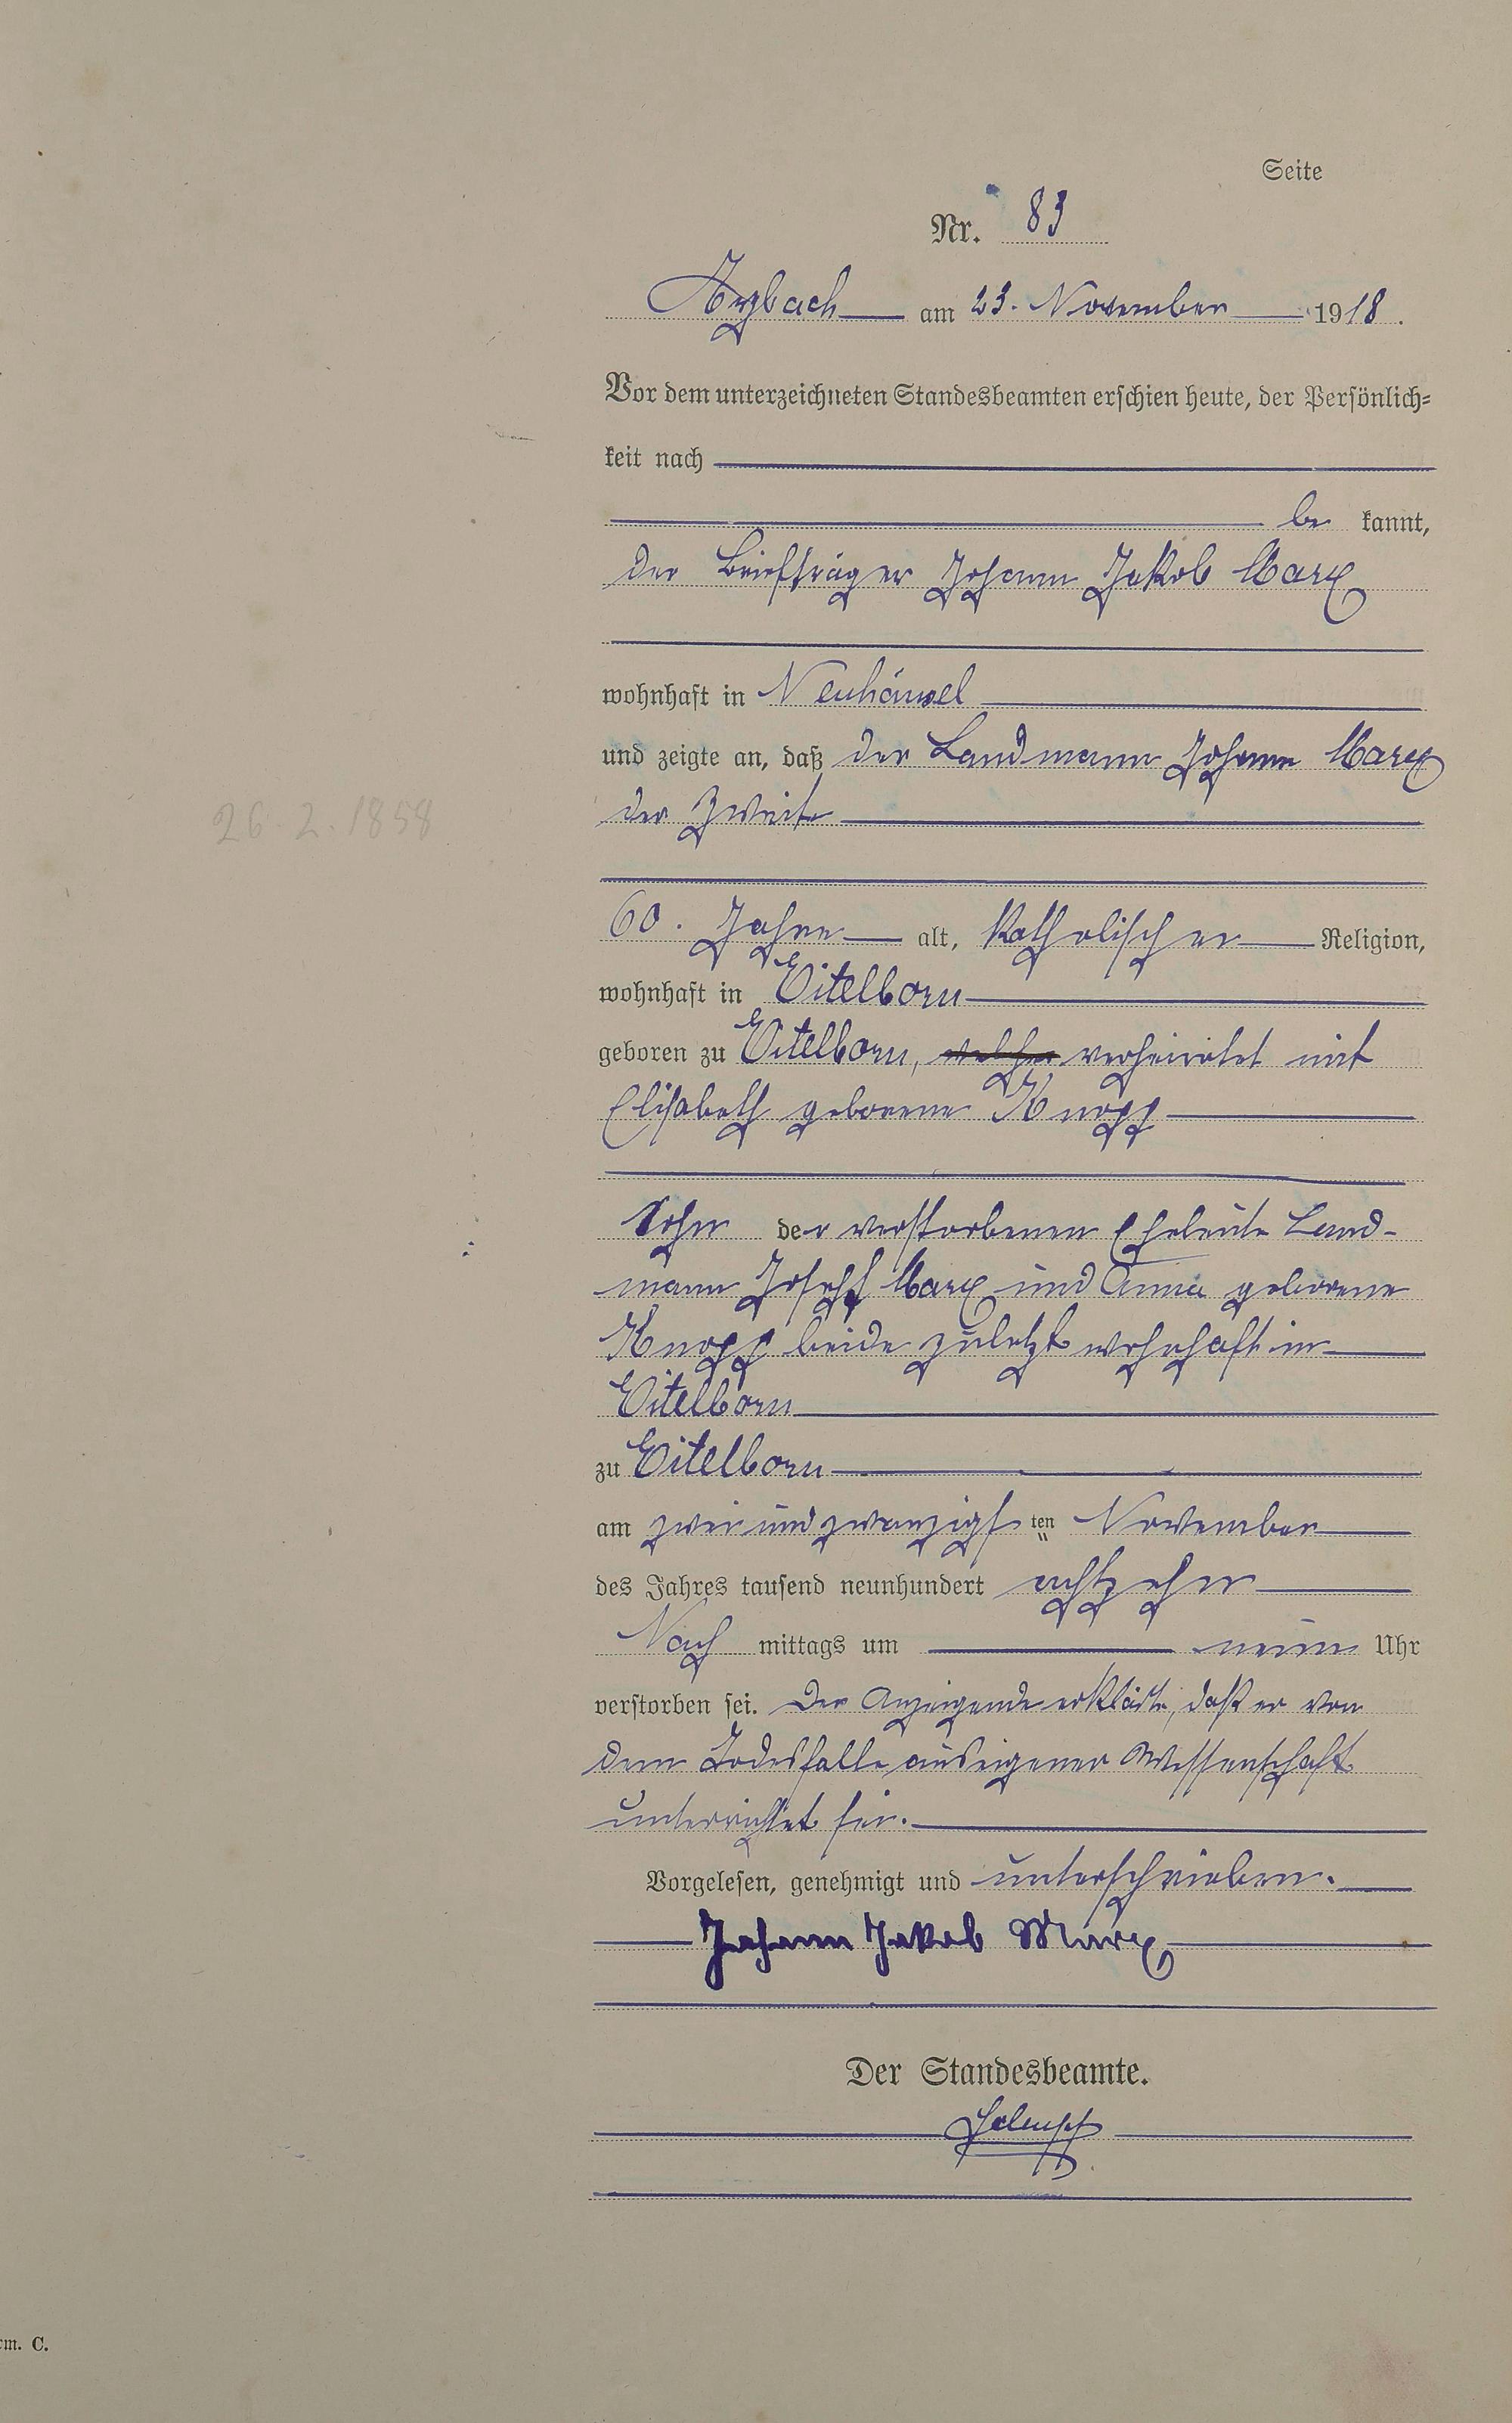 Seite
Nr. 83
Arzbach am 23. November 1918.
Vor dem unterzeichneten Standesbeamten erschien heute, der Persönlich=
keit nach
be kannt,
der Briefträger Johann Jakob Marx
wohnhaft in Neuhäusel
und zeigte an, daß der Landmann Johann Marx
der Zweite
26.2.1858
60. Jahre alt, katholischer Religion,
wohnhaft in Eitelborn
geboren zu Eitelborn, welcher verheiratet mit
Elisabeth geborene Knopp
Sohn der verstorbenen Eheleute Land-
mann Joseph Marx und Anna geborene
Knopp beide zuletzt wohnhaft in
Eitelborn
zu Eitelborn
am zwei und zwanzigsten November
des Jahres tausend neunhundert achtzehn
Nach mittags um neun Uhr
verstorben sei. Der Anzeigende erklärte, daß er von
dem Todesfalle aus eigener Wissenschaft
unterrichtet sei.
Vorgelesen, genehmigt und unterschrieben.
Johann Jakob Marx
Der Standesbeamte.
rm. C.